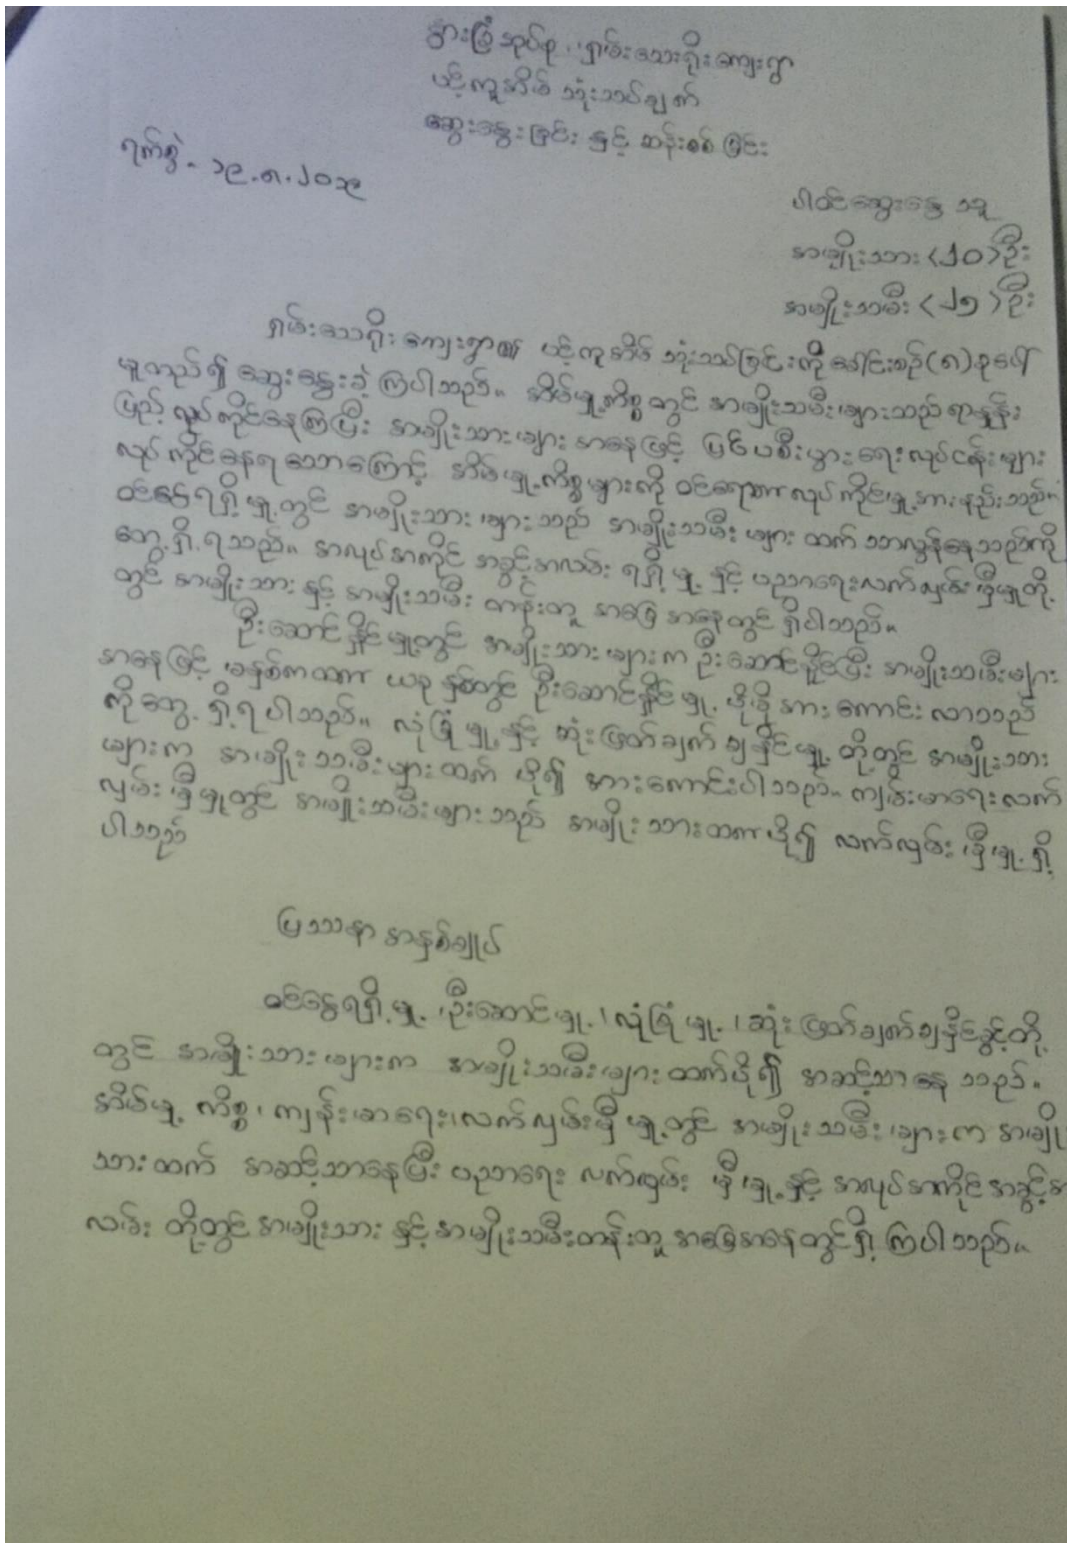 နွားခြံအုပ်စု ၊ ရှမ်းသေးရိုးကျေးရွာ
ပင့်ကူအိမ် သုံးသပ်ချက်
ဆွေးနွေးခြင်း နှင့် ဆန်းစစ်ခြင်း
ရက်စွဲ - ၁၉.၈.၂၀၁၉
ပါဝင်ဆွေးနွေး သူ
အမျိုးသား (၂၀)ဦး
အမျိုးသမီး (၂၅)ဦး
ရှမ်းသေးရိုး ကျေးရွာ၏ ပင့်ကူအိမ် သုံးသပ်ခြင်းကို ခေါင်းစဉ်(၈)ခုပေါ်
မူတည်၍ ဆွေးနွေးခဲ့ ကြပါသည်။ အိမ်မှု့ကိစ္စတွင် အမျိုးသမီးများသည် ရာနှုန်း
ပြည့် လုပ်ကိုင်နေကြပြီး အမျိုးသားများ အနေဖြင့် ပြင်ပစီးပွားရေးလုပ်ငန်းများ
လုပ်ကိုင်နေရ သောကြောင့် အိမ်မှု့ကိစ္စများကို ဝင်ရောက်လုပ်ကိုင်မှု့အားနည်းသည်။
ဝင်ငွေရရှိ့မှု့တွင် အမျိုးသားများသည် အမျိုးသမီးများ ထက် သာလွန်နေသည်ကို
တွေ့ရှိ့ရသည်။ အလုပ်အကိုင် အခွင့်အလမ်း ရရှိ့မှု့ နှင့် ပညာရေးလက်လှမ်းမှီမှုတို့
တွင် အမျိုးသား နှင့် အမျိုးသမီး တန်းတူ အခြေအနေတွင် ရှိပါသည်။
ဦးဆောင်နှိုင်မှု့တွင် အမျိုးသားများက ဦးဆောင်နှိုင်ပြီး အမျိုးသမီးများ
အနေဖြင့် မနှစ်ကထက် ယခုနှစ်တွင် ဦးဆောင်နှိုင်မှု့ ပိုမို အားကောင်းလာသည်
ကိုတွေ့ရှိ့ရပါသည်။ လုံခြုံမှု့နှင့် ဆုံးဖြတ်ချက်ချနှိုင်မှု့တို့တွင် အမျိုးသား
များက အမျိုးသမီးများထက် ပို၍ အားကောင်းပါသည်။ ကျန်းမာရေးလက်
လှမ်းမှီမှုတွင် အမျိုးသမီးများသည် အမျိုးသားထက်ပို၍ လက်လှမ်းမှီမှု့ရှိ့
ပါသည်
ပြဿနာ အနှစ်ချုပ်
ဝင်ငွေရရှိ့မှု့ ၊ဦးဆောင်မှု့ ၊လုံခြုံမှု့ ၊ဆုံးဖြတ်ချက်ချနှိုင်ခွင့်တို့
တွင် အမျိုးသားများက အမျိုးသမီးများထက်ပို၍ အဆင့်သာနေသည်။
အိမ်မှု့ကိစ္စ၊ ကျန်းမာရေးလက်လှမ်းမှီမှု့တွင် အမျိုးသမီးများက အမျိုး
သားထက် အဆင့်သာနေပြီး ပညာရေး လက်လှမ်း မှီမှု့နှင့် အလုပ်အကိုင်အခွင့်အ
လမ်း တို့တွင် အမျိုးသား နှင့် အမျိုးသမီးတန်းတူ အခြေအနေတွင်ရှိ့ကြပါသည်။